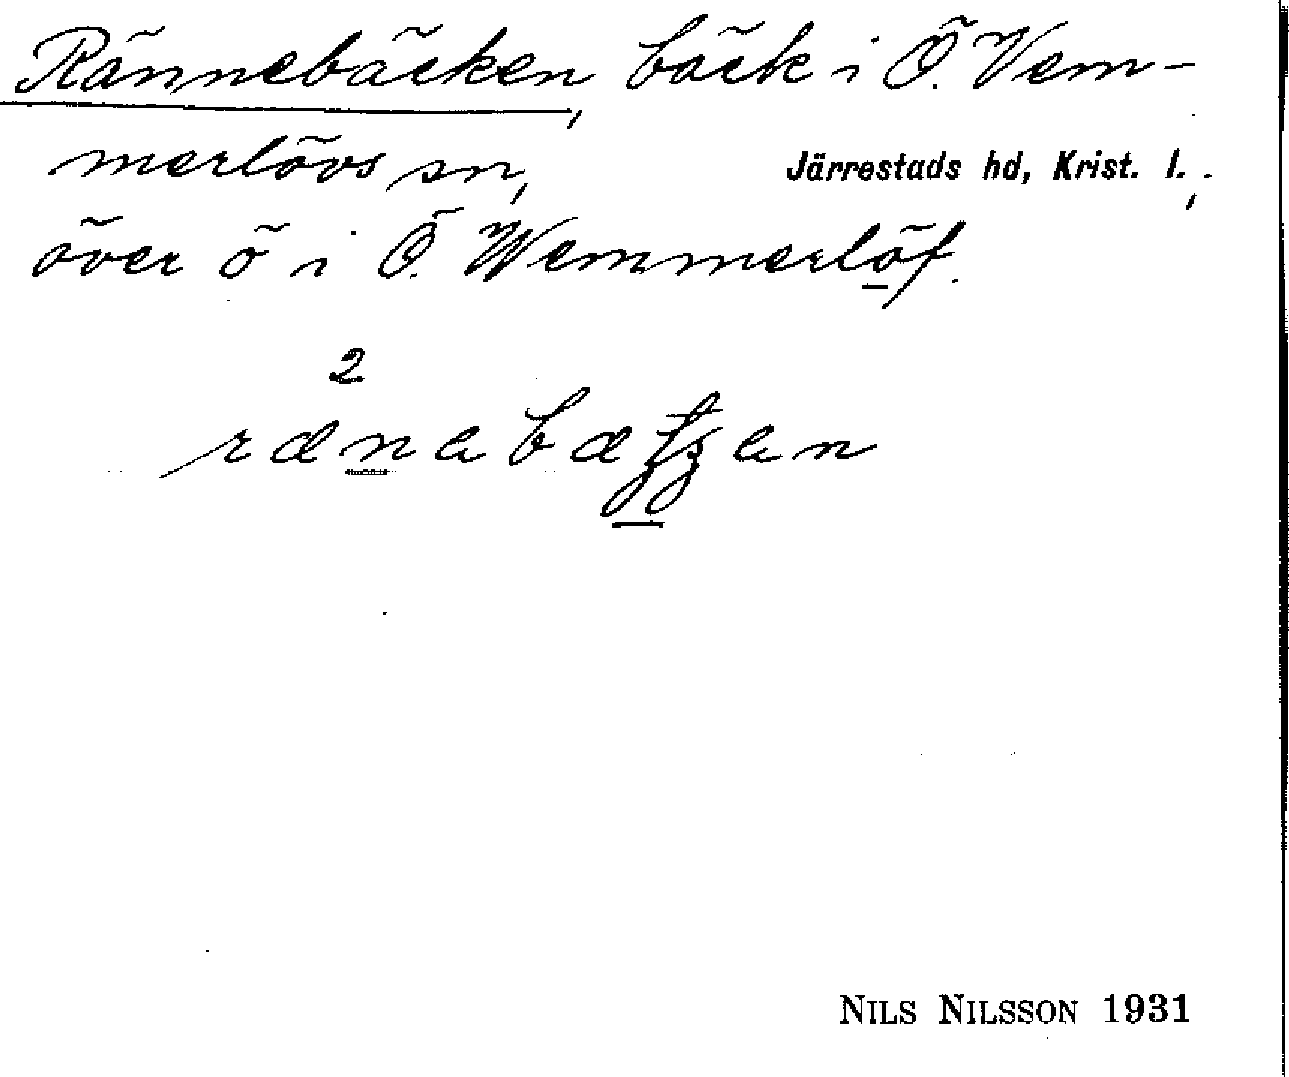 Rännebäcken, bäck i Ö. Vem-
merlövs sn, Järrestads hd, Krist. l.,
över ö i Ö. Wemmerlöf.
2
NILS NILSSON 1931